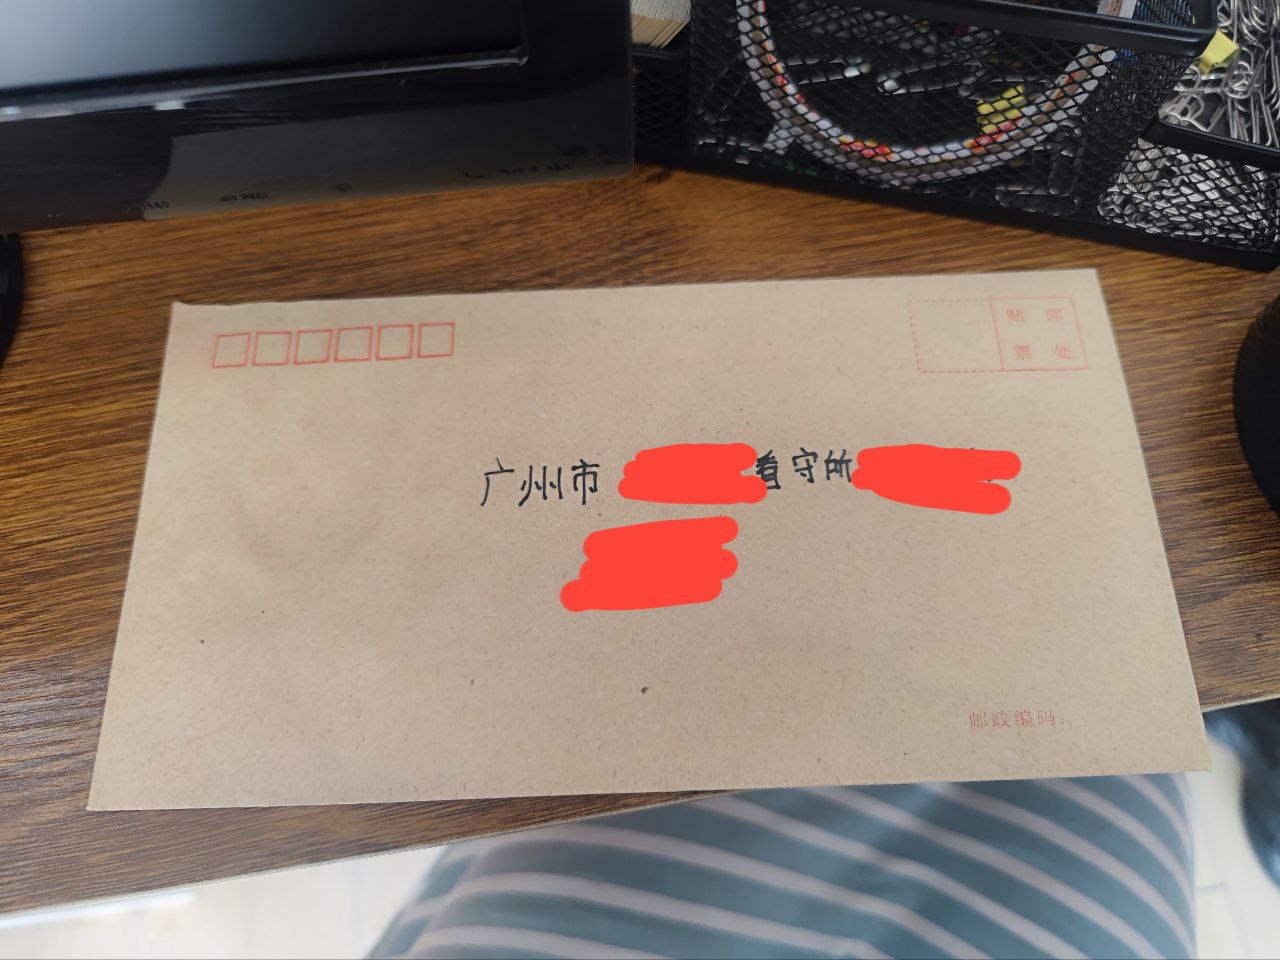 贴 邮
票 处
广州市 看守所
邮政编码：